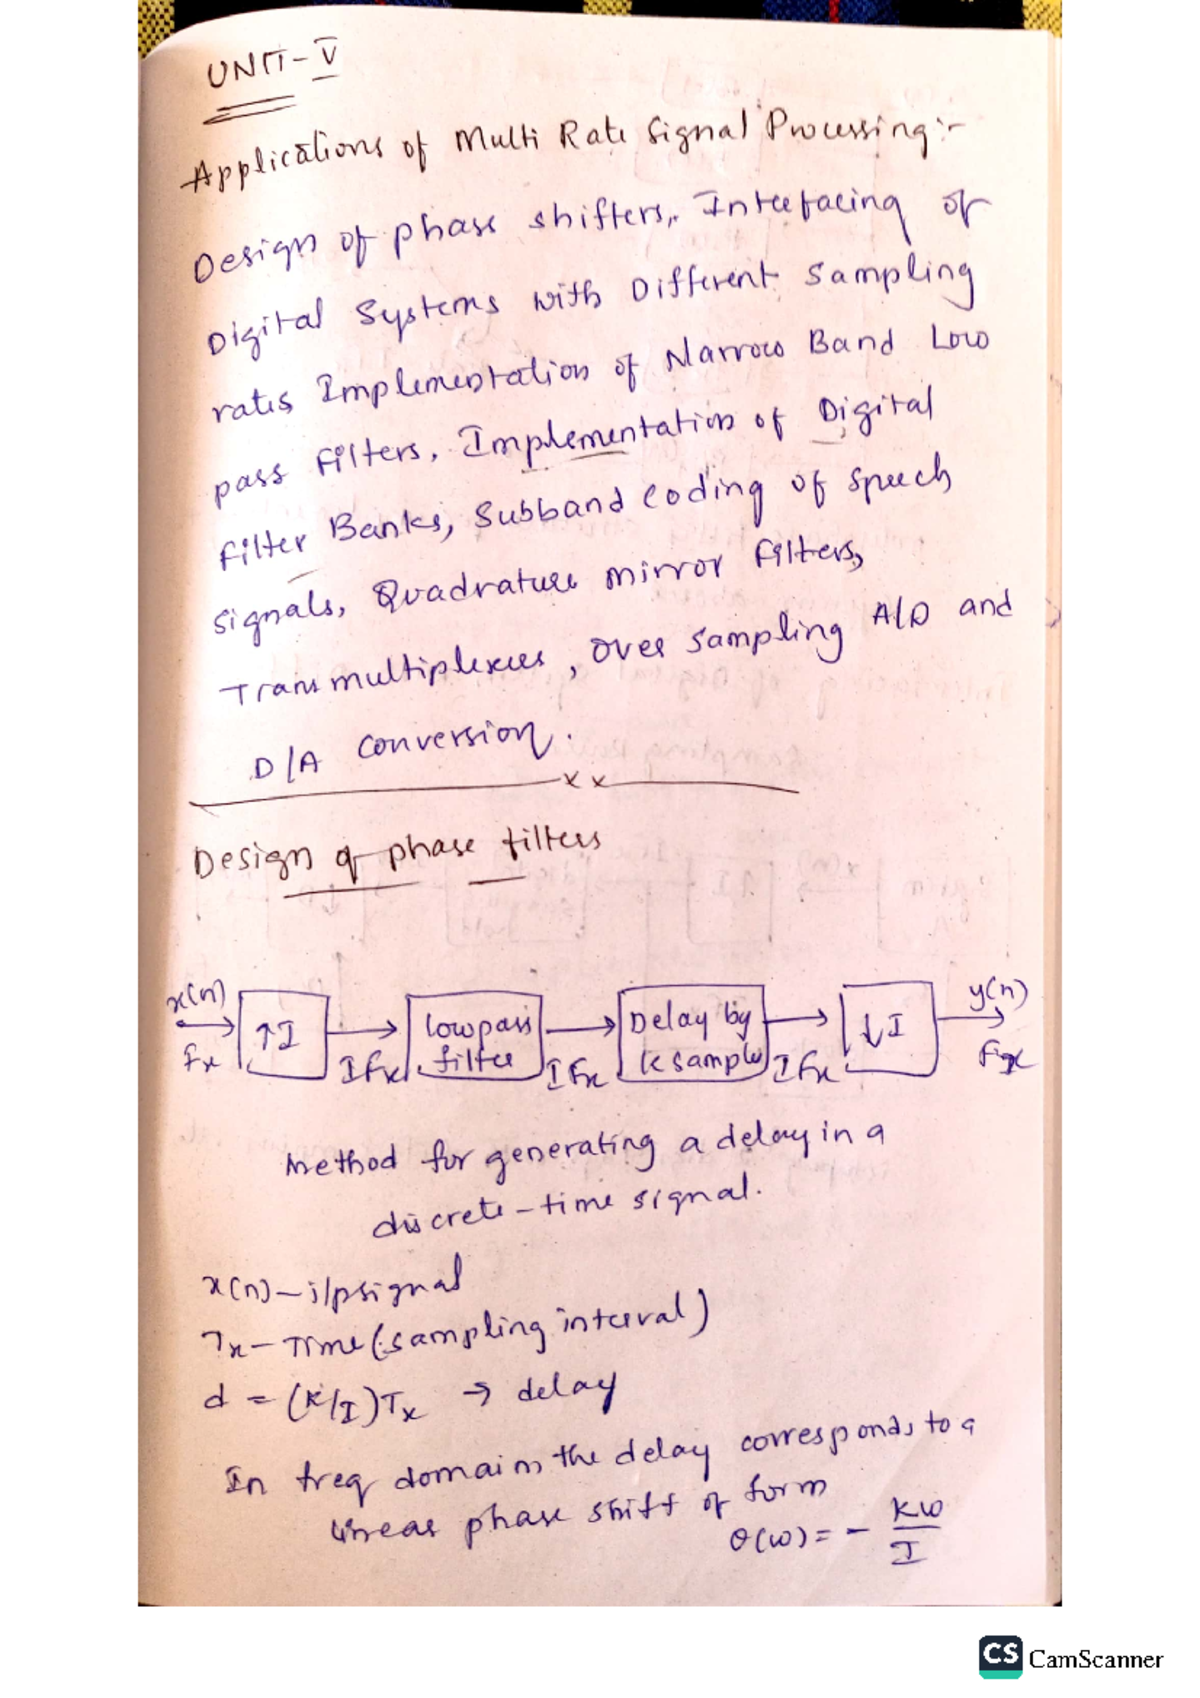 UNIT-V
Applications of Multi Rate Signal Processing:-
Design of phase shifters, Interfacing of
Digital Systems with Different Sampling
rates Implementation of Narrow Band Low
pass filters, Implementation of Digital
filter Banks, Subband Coding of Speech
signals, Quadrature mirror filters,
Trans multiplexers, Over sampling A/D and
D/A Conversion.
x x
Design of phase filters
x(n) Fx ↑I IFx Lowpass filter IFx Delay by k sample IFx ↓I y(n) Fx
Method for generating a delay in a
discrete-time signal.
x(n) - i/p signal
Tx - Time (sampling interval)
d = (K/I)Tx → delay
In freq domain, the delay corresponds to a
linear phase shift of form
θ(ω) = - Kω/I
CS CamScanner